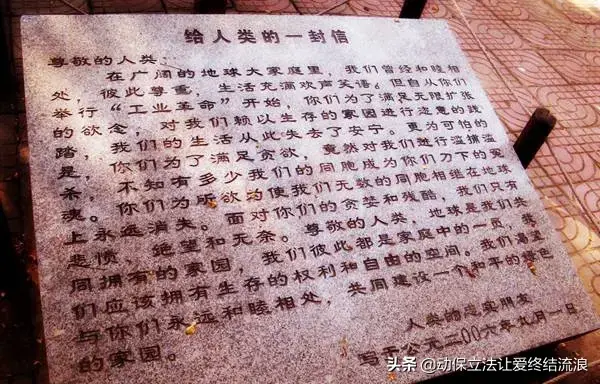 给人类的一封信
尊敬的人类：
在广阔的地球大家庭里，我们曾经和睦相
处，彼此尊重，生活充满欢声笑语。但自从你们
举行“工业革命”开始，你们为了满足无限扩张
的欲念，对我们赖以生存的家园进行恣意的践
踏，我们的生活从此失去了安宁。更为可怕的
是，你们为了满足贪欲，竟然对我们进行滥捕滥
杀，不知有多少我们的同胞成为你们刀下的冤
魂。你们为所欲为使我们无数的同胞相继在地球
上永远消失。面对你们的贪婪和残酷，我们只有
悲愤，绝望和无奈。尊敬的人类，地球是我们共
同拥有的家园，我们彼此都是家庭中的一员，我
们应该拥有生存的权利和自由的空间。我们渴望
与你们永远和睦相处，共同建设一个和平的绿色
的家园。
人类的忠实朋友
写于公元二00六年九月一日
头条@动保立法让爱终结流浪